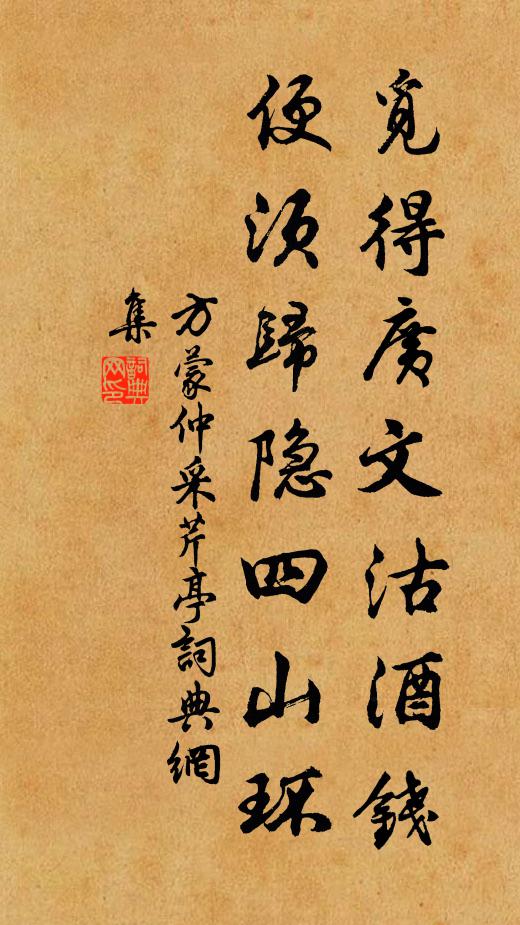 覓得廣文沽酒錢
便須歸隐四山環
方蒙仲采芹亭詞典網
集
詞典网印